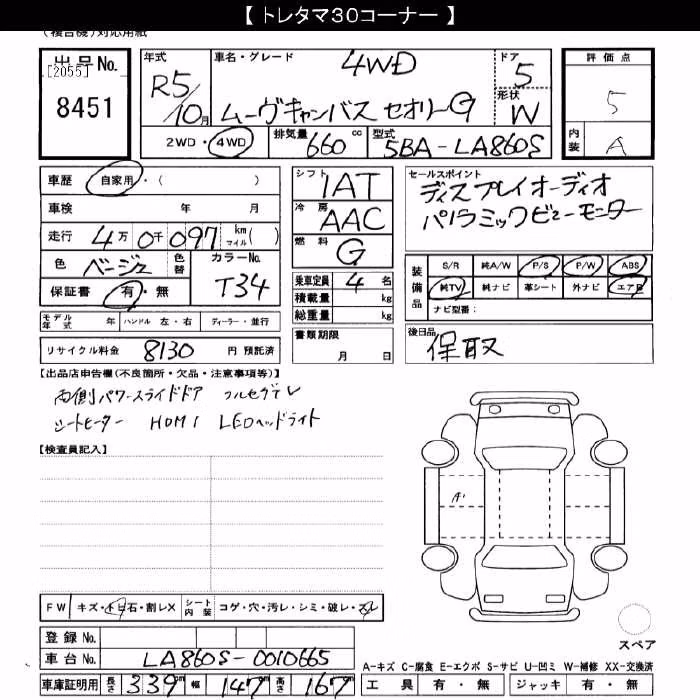 【 トレタマ30コーナー 】
(複合機)対応用紙
出品No. [2055] 8451
年式 R5/10月
車名・グレード 4WD ムーヴキャンバス セオリーG
ドア 5
形状 W
評価点 5
内装 A
2WD・4WD 排気量 660 cc 型式 5BA-LA860S
車歴 自家用・( )
車検 年 月
走行 4万0千097 km マイル( )
色 ベージュ 色替 カラーNo. T34
保証書 有・無
シフト IAT
冷房 AAC
燃料 G
乗車定員 4 名
積載量 kg
総重量 kg
セールスポイント
ディスプレイオーディオ
パノラミックビューモニター
装備品 S/R 純A/W P/S P/W ABS
純TV 純ナビ 革シート 外ナビ エアB
ナビ型番:
モデル年式 年 ハンドル 左・右 ディーラー・並行
リサイクル料金 8130 円 預託済
書類期限 月 日
後日品 保取
【出品店申告欄(不良箇所・欠品・注意事項等)】
両側パワースライドドア フルセグテレ
シートヒーター HDMI LEDヘッドライト
【検査員記入】
A1
FW キズ・トビ石・割レX シート内装 コゲ・穴・汚レ・シミ・破レ・スレ
登録No.
車台No. LA860S-0010665
スペア
A-キズ C-腐食 E-エクボ S-サビ U-凹ミ W-補修 XX-交換済
車庫証明用 長さ 339 cm 幅 147 cm 高さ 167 cm
工具 有・無 ジャッキ 有・無